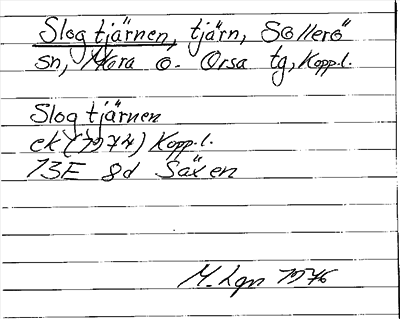 Slogtjärnen, tjärn, Sollerö
sn, Mora o. Orsa tg, Kopp.l.
Slogtjärnen
ek (1974) Kopp.l.
13E 8d Säxen
M. Lgn 1976